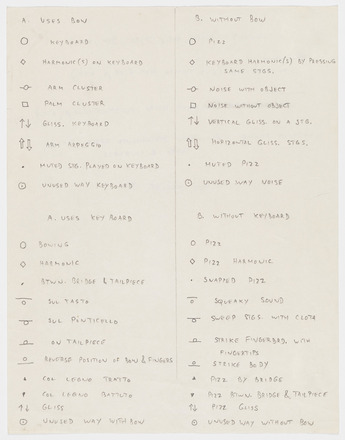 A. USES BOW
KEYBOARD
HARMONIC(S) ON KEYBOARD
ARM CLUSTER
PALM CLUSTER
GLISS. KEYBOARD
ARM ARPEGGIO
MUTED STG. PLAYED ON KEYBOARD
UNUSED WAY KEYBOARD
B. WITHOUT BOW
PIZZ
KEYBOARD HARMONIC(S) BY PRESSING
SAME STGS.
NOISE WITH OBJECT
NOISE WITHOUT OBJECT
VERTICAL GLISS ON A STG.
HORIZONTAL GLISS. STGS.
MUTED PIZZ
UNUSED WAY NOISE
A. USES KEYBOARD
BOWING
HARMONIC
BTWN. BRIDGE & TAILPIECE
SUL TASTO
SUL PONTICELLO
ON TAILPIECE
REVERSE POSITION OF BOW & FINGERS
COL LEGNO TRATTO
COL LEGNO BATTUTO
GLISS
UNUSED WAY WITH BOW
B. WITHOUT KEYBOARD
PIZZ
PIZZ HARMONIC
SNAPPED PIZZ
SQUEAKY SOUND
SWEEP STGS. WITH CLOTH
STRIKE FINGERBRD, WITH
FINGERTIPS
STRIKE BODY
PIZZ BY BRIDGE
PIZZ BTWN. BRIDGE & TAILPIECE
PIZZ GLISS
UNUSED WAY WITHOUT BOW